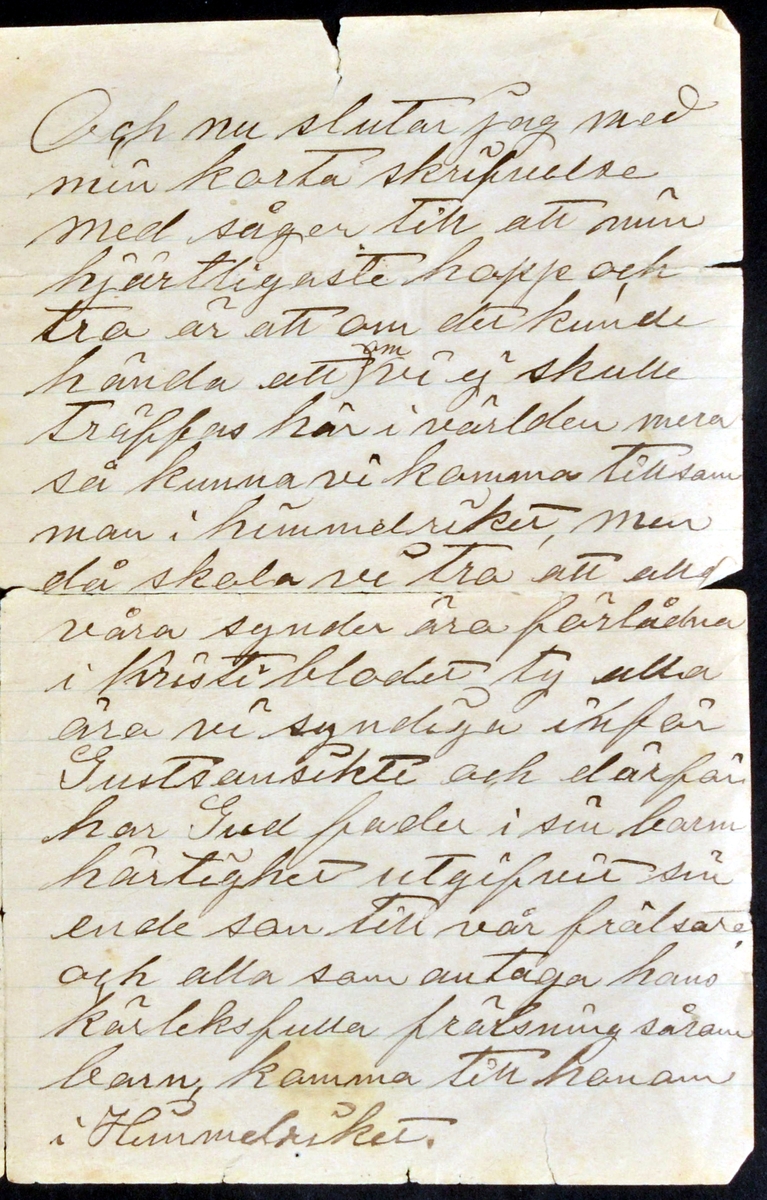 Och nu slutar jag med
min korta skrifvelse
med såger till att min
hjärtligaste hopp och
tro är att om det kunde
hända att om vi ej skulle
träffas här i världen mera
så kunna vi komma tillsam
man i himmelriket, men
då skola vi tro att alla
våra synder åro förlådna
i Kristi blodet ty alla
äro vi syndiga inför
Gustsansikte och därför
har Gud fader i sin barm
härtighet utgifvit sin
ende son till vår frälsare
och alla som antaga hans
kärleksfulla frälsning såsom
barn, komma till honom
i Himmelriket.